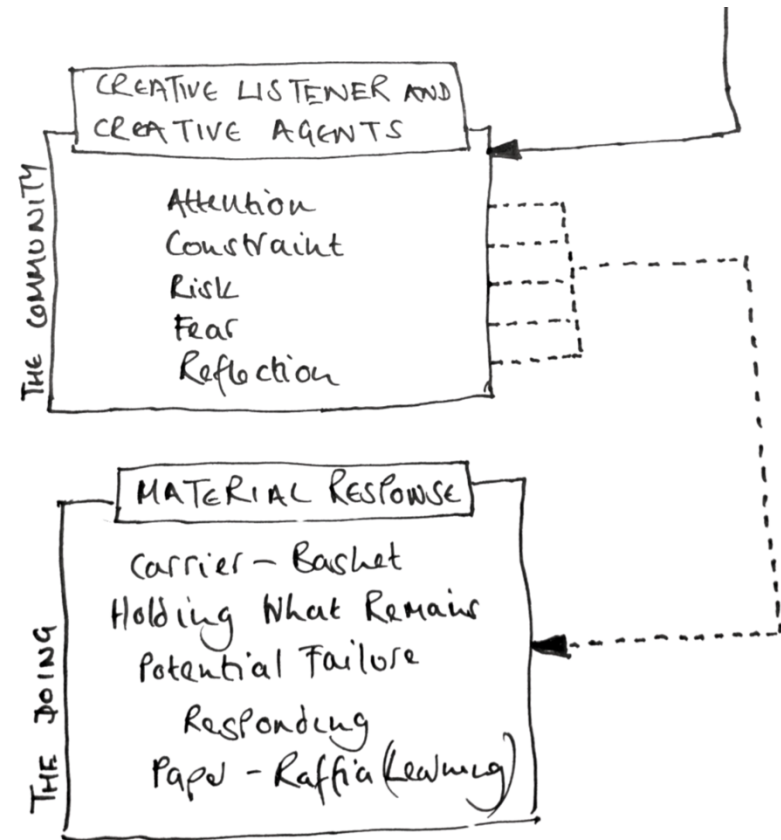 CREATIVE LISTENER AND
CREATIVE AGENTS
THE COMMUNITY
Attention
Constraint
Risk
Fear
Reflection
MATERIAL RESPONSE
THE DOING
Carrier - Basket
Holding What Remains
Potential Failure
Responding
Paper - Raffia (Learning)